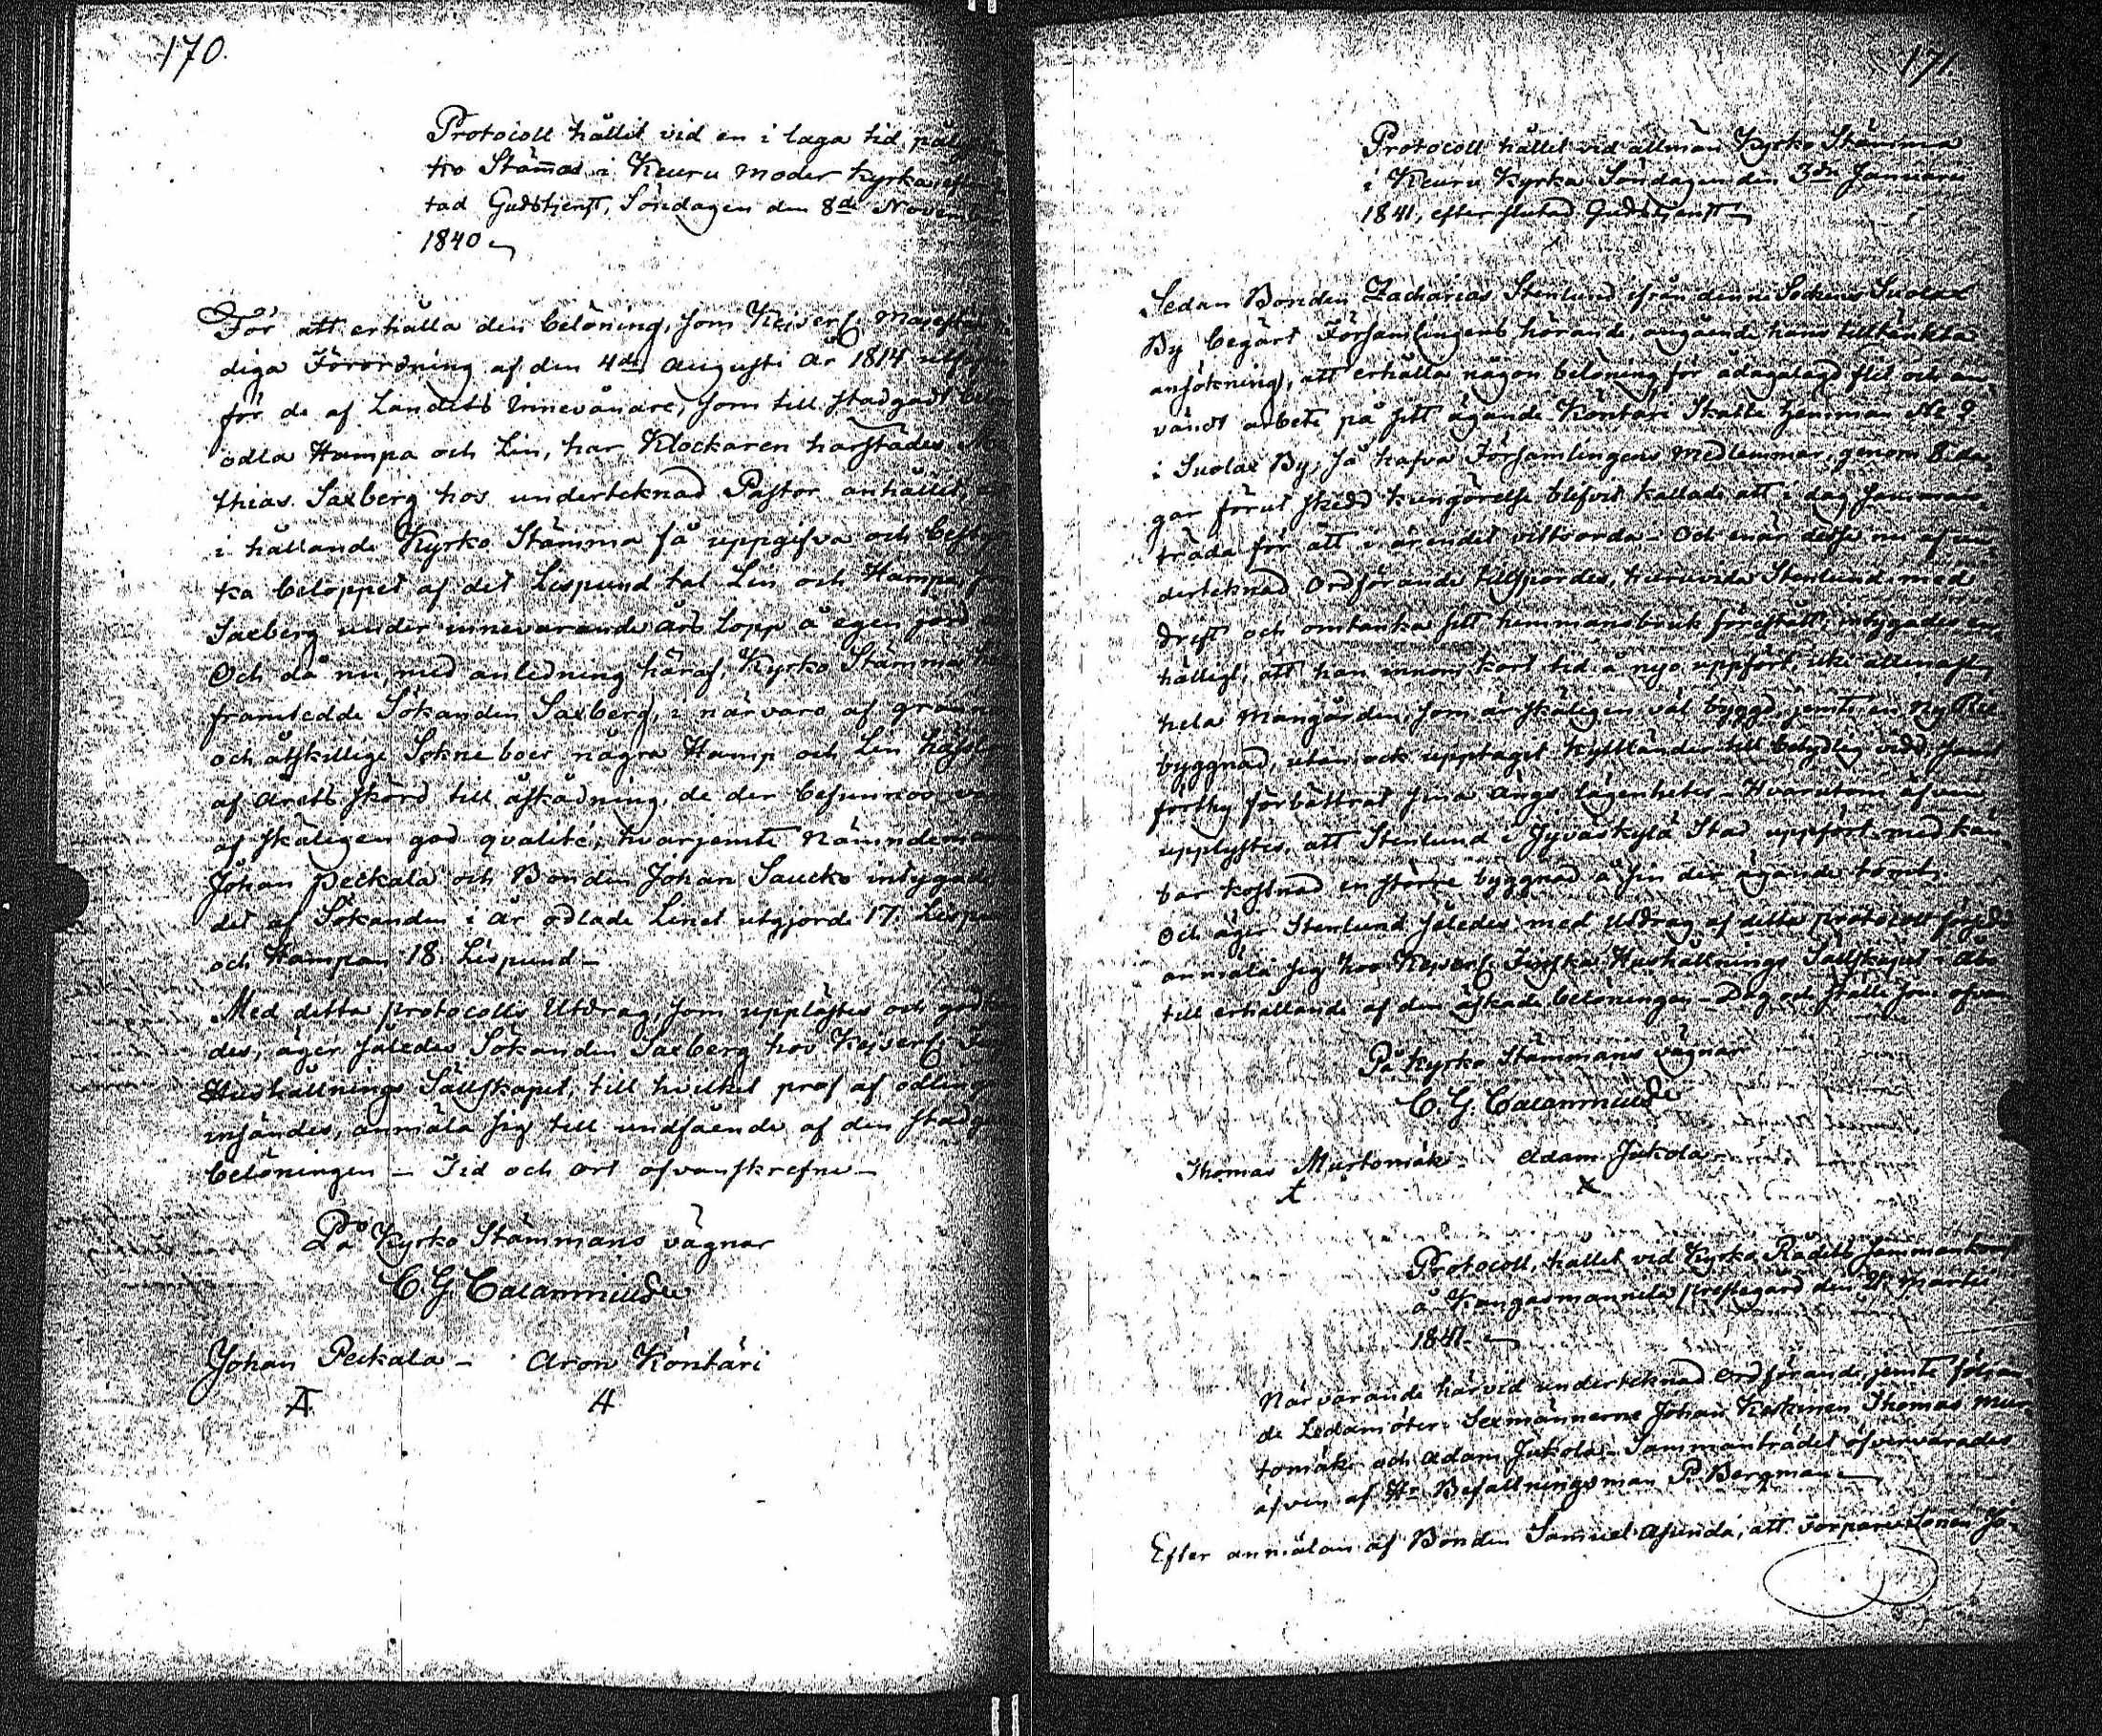 170.
Protocoll hållit vid en i laga tid
ko Stämma i Keuru Moder Kyrka
tad Gudstjenst, Söndagen den 8de November
1840
För att erhålla den belöning, som Kejserl Majestäts
diga Förordning af den 4de Augusti år 1814
för de af Landets Innevånare, som till stadgadt
odla Hampa och Lin, har Klockaren härstädes
thias Saxberg hos underteknad Pastor anhållit
i hållande Kyrko Stämma få uppgifva och
ka beloppet af det Lispund tal Lin och Hampa
Saxberg under innevarande års lopp å egen jord
Och då nu, med anledning häraf, Kyrko Stämma
framtedde Sökanden Saxberg, i närvaro af
och åtskillige Sokneboer några Hamp och Lin
af årets skörd till åskådning, de der befunnos
af skäligen god qvalité, hvarjemte Nämndeman
Johan Peikala och Bonden Johan Saucko intygade
det af Sökanden i år odlade Linet utgjorde 17. Lispund
och Hampan 18. Lispund –
Med detta protocolls Utdrag, som upplästes och
des, äger således Sökanden Saxberg hos Kejserl.
Hushållnings Sällskapet, till hvilket prof af odlingen
insändes, anmäla sig till undfående af den
belöningen – Tid och ort ofvanskrefne –
På Kyrko Stämmans vägnar
C. G. Calamnius
Johan Peikala – Aron Köntäri
A 4
171.
Protocoll hållet vid allmän Kyrko Stämma
i Keuru Kyrka Söndagen den 3de Januarii
1841, efter slutad Gudstjenst
Sedan Bonden Zacharias Stenlund ifrån denne Sockens Suolax
By begärt Församlingens hörande, angående hans tilltänkta
ansökning, att erhålla någon belöning för ådagalagd flit och an-
vändt arbete på sitt ägande Köntäri Skatte hemman No 9
i Suolax By, så hafva Församlingens Medlemmar, genom 8 da-
gar förut skedd kungörelse blifvit kallade att i dag samman-
träda för att i ärendet vittsorda – Och enär desse nu af un-
derteknad Ordförande tillspordes, huruvida Stenlund med
drift och omtanka sitt hemmansbruk förestått, intygades en-
hälligt, att han innom kort tid å nyo uppfört, icke allenast
hela Mangården, som är skäligen väl byggd, jemte en ny Rie
byggnad, utan ock upptagit Kyttländer till betydlig vidd, samt
förthy förbättrat sina ängs lägenheter – Hvarutom äfven
upplystes, att Stenlund i Jyväskylä Stad uppfört med kän-
bar kostnad en större byggnad å sin der ägande tomt.
Och äger Stenlund således med Utdrag af detta protocoll
anmäla sig hos Kejserl Finska Hushållnings Sällskapet i Åbo
till erhållande af den äskade belöningen – Dag och ställe som ofvan
På Kyrko Stämmans vägnar
C. G. Calamnius
Thomas Murtomäki – Adam Jukola –
t x
Protocoll, hållet vid Kyrko Rådets sammankomst
å Kangasmannila prestegård den Martii
1841.
När varande härvid underteknad Ordförande, jemte följan-
de Ledamöter: Sexmännerne Johan Keskinen Thomas Mur-
tomäki och Adam Jukola – Sammanträdet öfvervarades
äfven af Hr Befallningsman P. Bergman –
Efter anmälan af Bonden Samuel Asunda, att Torpare Sonen Jo-